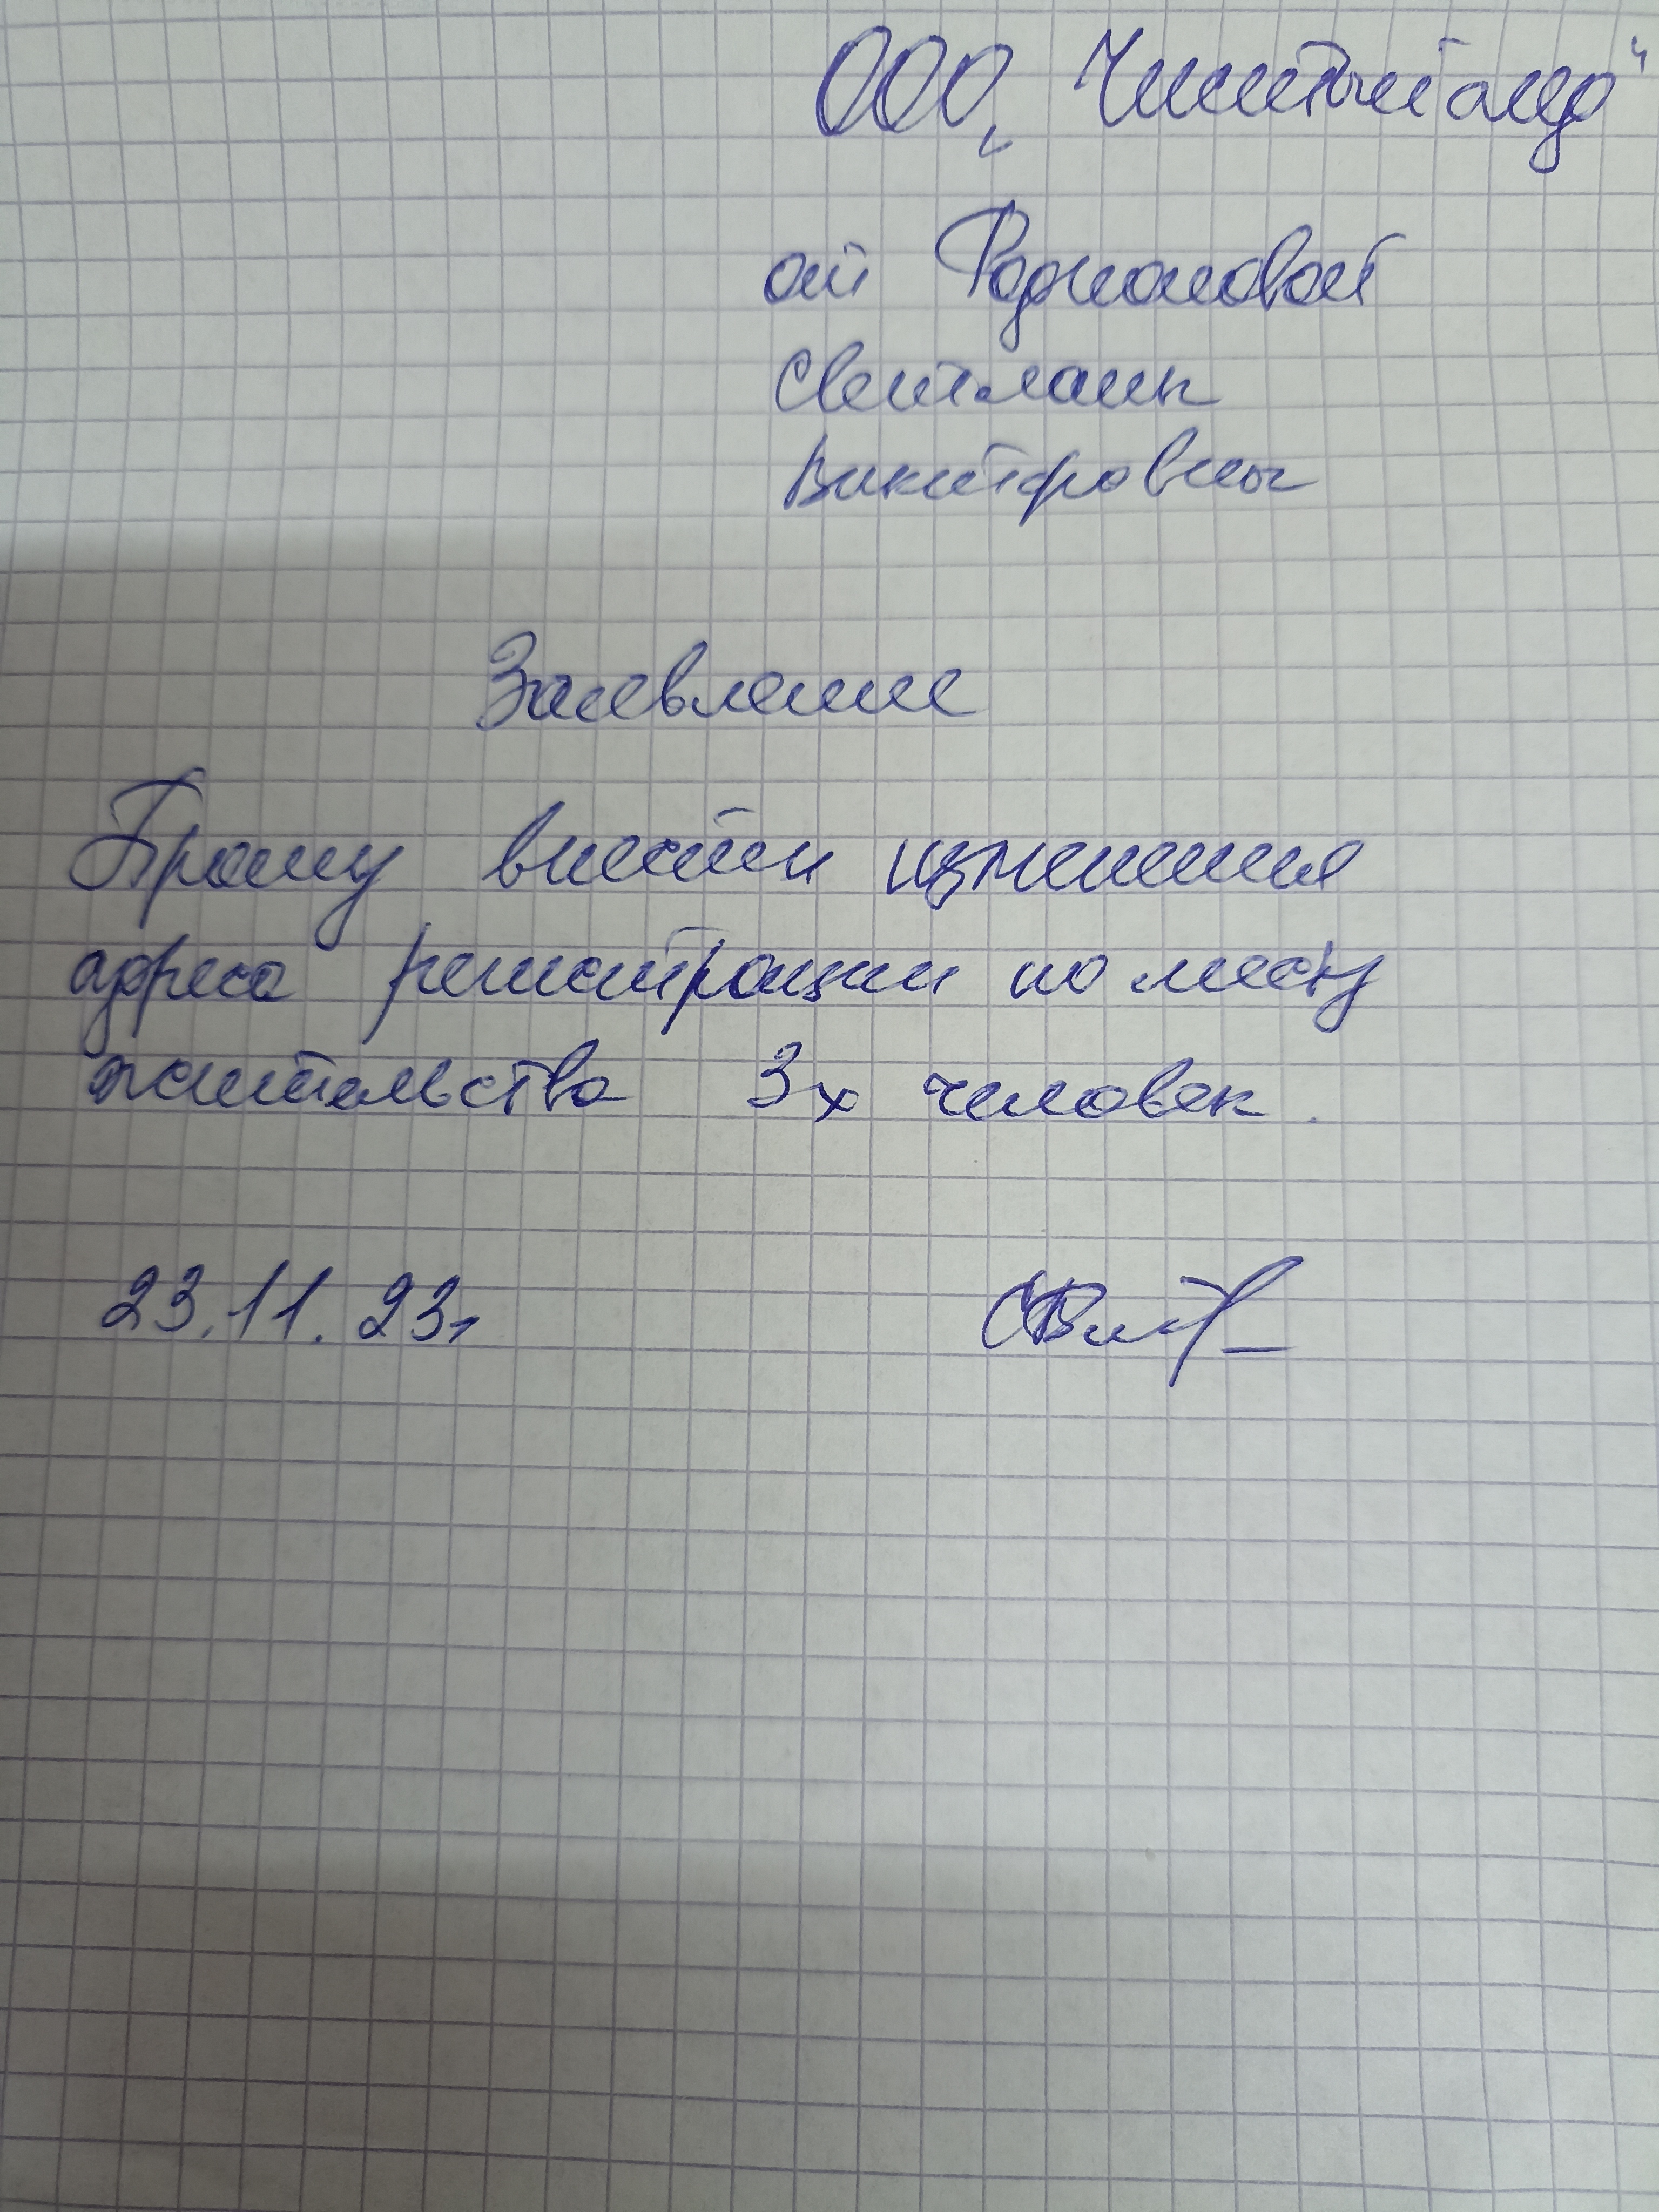 ООО „Чистый
от Родионовой
Светланы
Викторовны
Заявление
Прошу внести изменения
адреса регистрации по месту
жительства 3х человек.
23.11.23г